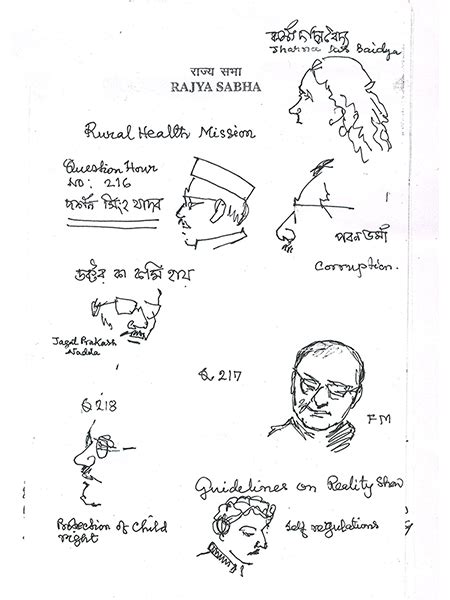 ঝর্ণা দাস বৈদ্য
Jharna Das Baidya
राज्य सभा
RAJYA SABHA
Rural Health Mission
Question Hour
NO: 216
দর্শন সিংহ যাদব
পবন ভার্মা
Corruption.
Jagat Prakash
Nadda
Q 217
Q 218
FM
Guidelines on Reality Show
Protection of Child
right
self regulations